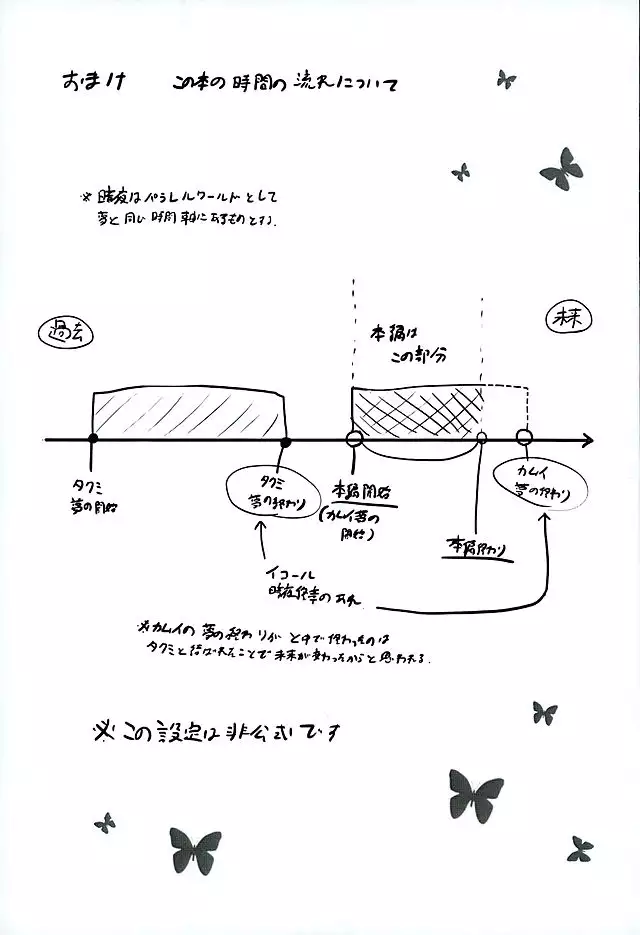 おまけ この本の時間の流れについて
※暁夜はパラレルワールドとして
夢と同じ時間軸にあるものとする。
過去
未来
本編は
この部分
タクミ
夢の開始
タクミ
夢の終わり
本編開始
(カムイ夢の
開始)
本編終わり
カムイ
夢の終わり
イコール
暗夜終章のあれ
※カムイの夢の終わりが と中で終わったのは
タクミと結ばれたことで未来が変わったからと思われる。
※この設定は非公式です